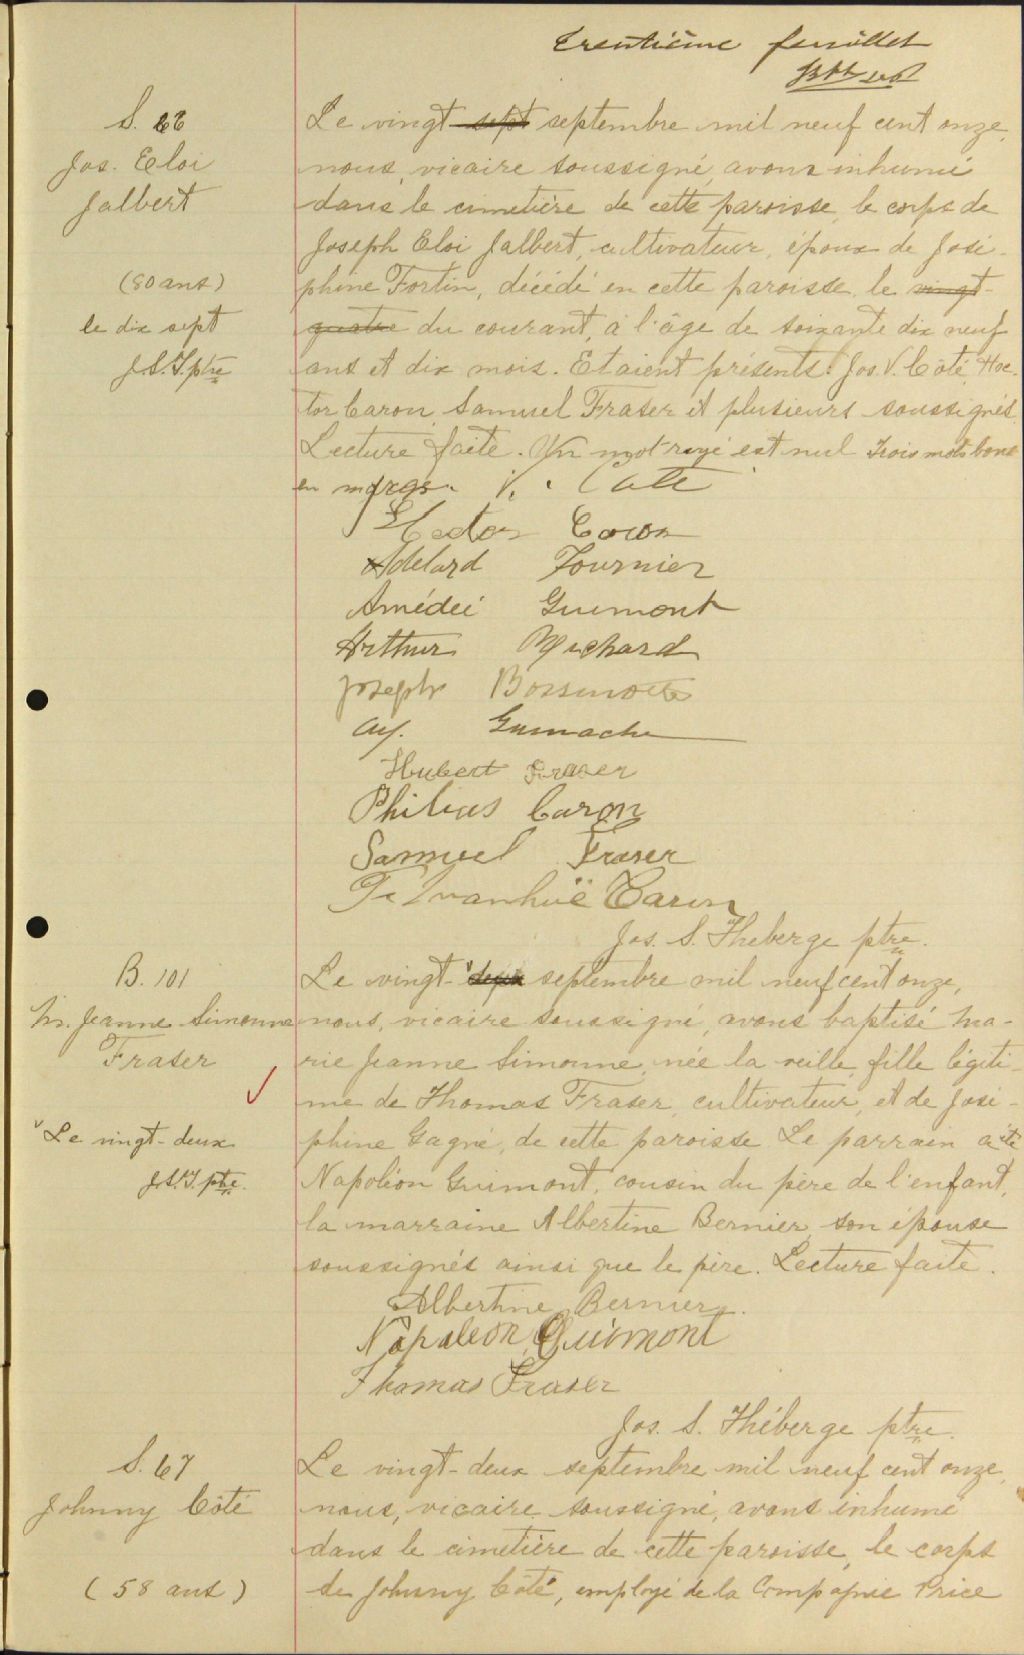 trentième feuillet
S. 66
Jos. Eloi
Jalbert
(80 ans)
le dix sept
J.S.T. ptre
Le vingt sept septembre mil neuf cent onze,
nous, vicaire soussigné, avons inhumé
dans le cimetière de cette paroisse, le corps de
Joseph Eloi Jalbert, cultivateur, époux de José-
phine Fortin, décédé en cette paroisse, le vingt-
quatre du courant, à l'âge de soixante dix neuf
ans et dix mois. Etaient présents: Jos. V. Côté, Hec-
tor Caron, Samuel Fraser et plusieurs soussignés.
Lecture faite. Un mot rayé est nul Trois mots bons
en marge. V. Coté
Hector Caron
Adelard Fournier
Amédéé Guimont
Arthur Michard
Joseph
Gamache
Hubert Fraser
Philias Caron
Samuel Fraser
Ivanhoë Caron
Jos. S. Theberge ptre.
B. 101
M. Jeanne Simonne
Fraser
Le vingt-deux
J.S.T. ptre.
Le vingt- septembre mil neuf cent onze,
nous, vicaire soussigné, avons baptisé Ma-
rie Jeanne Simonne, née la veille, fille légiti-
me de Thomas Fraser, cultivateur, et de José-
phine Gagné, de cette paroisse. Le parrain a été
Napoléon Guimont, cousin du père de l'enfant,
la marraine Albertine Bernier, son épouse
soussignés ainsi que le père. Lecture faite.
Albertine Bernier.
Napoleon Guimont
Thomas Fraser
Jos. S. Théberge ptre.
S. 67
Johnny Côté
(58 ans)
Le vingt-deux septembre mil neuf cent onze,
nous, vicaire soussigné, avons inhumé
dans le cimetière de cette paroisse, le corps
de Johnny Côté, employé de la Compagnie Price